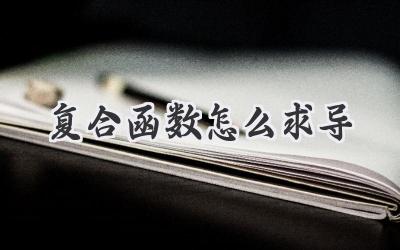 复合函数怎么求导